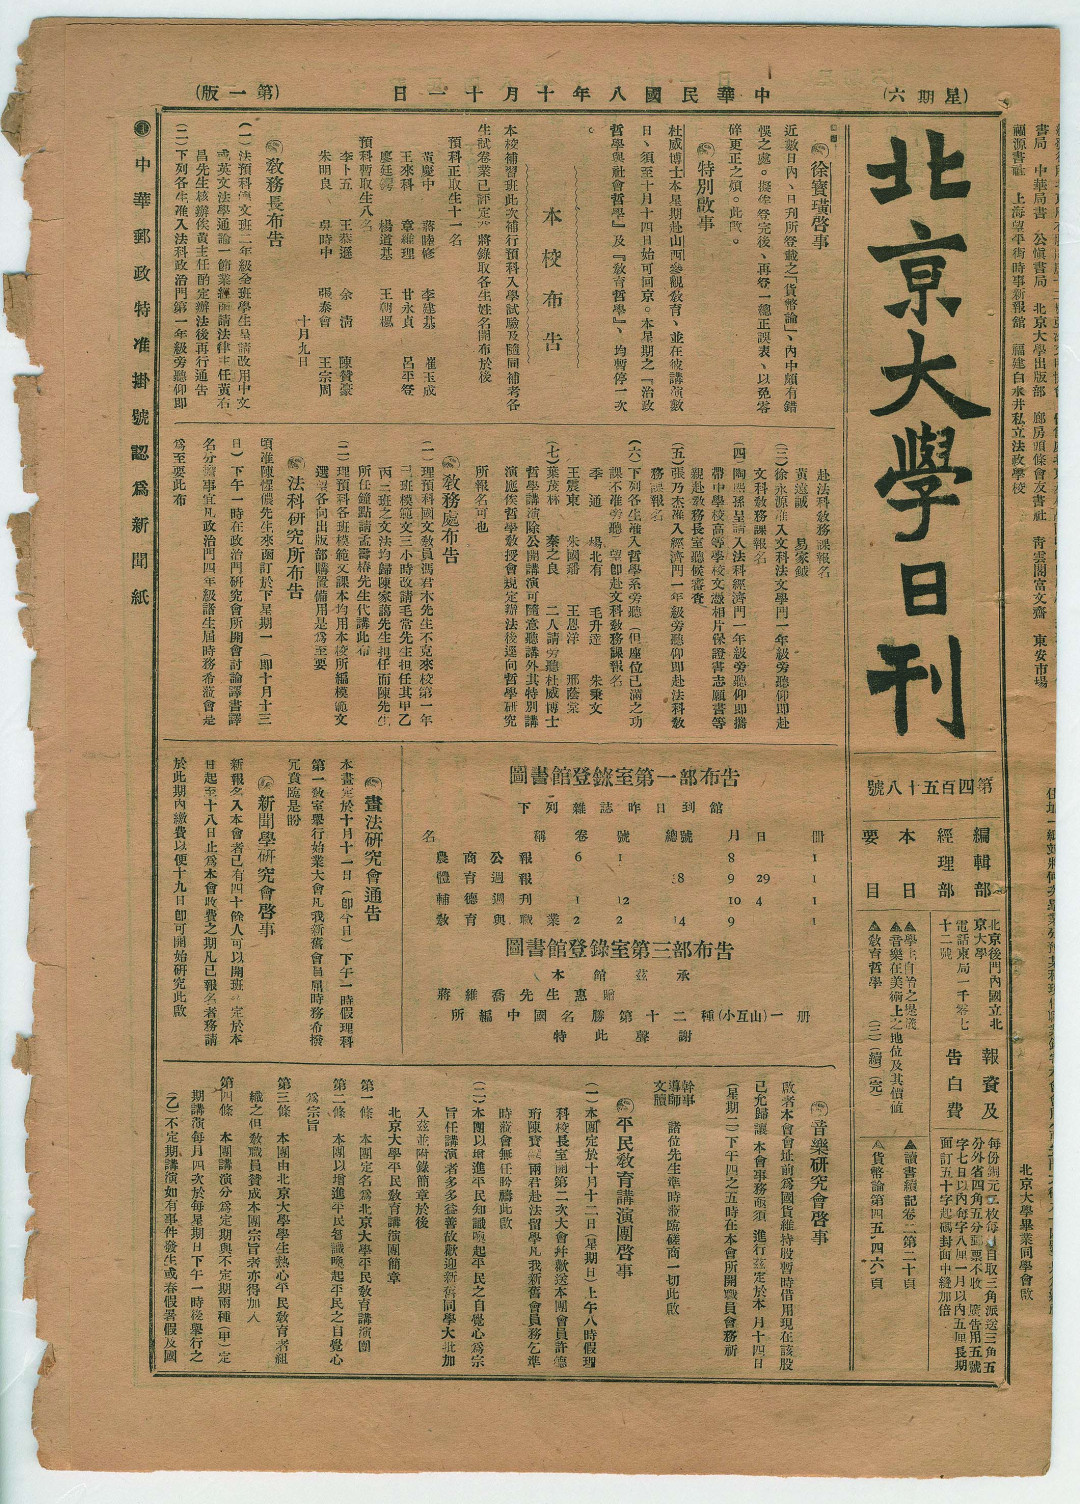 (星期六)
中華民國八年十月十一日
(第一版)
北京大學日刊
第四百五十八號
編輯部
經理部
北京後門內國立北
京大學
電話東局一千零七
十二號
報資及
告白費
每份銅元二枚每月自取三角派送三角五
分外省四角五分郵票不收 廣告用五號
字七日以內每字八厘一月以內五厘長期
面訂五十字起碼封面中縫加倍
本日
要目
▲音樂在美術上之地位及其價值
▲教育哲學 (三)(續)(完)
▲讀書續記卷二第二十頁
▲貨幣論第四五,四六頁
徐寶璜啓事
近數日內、日刊所登載之「貨幣論」、內中頗有錯
悞之處。擬俟登完後、再登一總正誤表、以免零
碎更正之煩。此啟。
特別啟事
杜威博士本星期赴山西參觀敎育、並在彼講演數
日、須至十月十四日始可回京。本星期之『治政
哲學與社會哲學』及『敎育哲學』、均暫停一次
。
本校布告
本校補習班此次補行預科入學試驗及隨同補考各
生試卷業已評定 將錄取各生姓名開布於後
預科正取生十一名
黃慶中 蔣睦修 李建基 崔玉成
王來科 章維理 甘永貞 呂平登
廖廷鶚 楊道基 王朝樞
預科暫取生八名
李卜五 王恭遜 余淸 陳贊豪
朱明良 吳時中 張泰會 王宗周
十月九日
敎務長布告
(一)法預科德文班二年級全班學生呈請改用中文
或英文法學通論一節業經函請法律主任黃右
昌先生核辦俟黃主任酌定辦法後再行通告
(二)下列各生准入法科政治門第一年級旁聽仰即
赴法科敎務課報名
黃遠誠 易家鉞
(三)徐永源准入文科法文學門一年級旁聽仰即赴
文科敎務課報名
(四)陶陽孫呈請入法科經濟門一年級旁聽仰即攜
帶中學校高等學校文憑相片保證書志願書等
親赴敎務長室聽候審查
(五)張乃杰准入經濟門一年級旁聽仰即赴法科敎
務課報名
(六)下列各生准入哲學系旁聽(但座位已滿之功
課不准旁聽)望即赴文科敎務課報名
季通 楊北有 毛升達 朱秉文
王震東 朱國璠 王恩洋 邢蔭棠
(七)葉茂林 秦之良 二人請旁聽杜威博士
哲學講演除公開講演可隨意聽講外其特別講
演應俟哲學敎授會規定辦法後逕向哲學研究
所報名可也
敎務處布告
(一)理預科國文敎員馮君木先生不克來校第一年
三班模範文三小時改請毛常先生担任其甲乙
丙三班之文法均歸陳家藹先生担任而陳先生
所任鐘點請孟壽椿先生代講此布
(二)理預科各班模範文課本均用本校所編模範文
選望各向出版部購置備用是爲至要
法科研究所布告
頃准陳惺儂先生來函訂於下星期一(即十月十三
日)下午一時在政治門研究會所開會討論譯書譯
名分擔事宜凡政治門四年級諸生屆時務希蒞會是
爲至要此布
圖書館登錄室第一部布告
下列雜誌昨日到館
名稱 卷 號 總號 月 日 冊
農商公報 6 1 8 1
體育週報 38 9 29 1
輔德週刊 1 12 10 4 1
敎育與職業 2 2 14 9 1
圖書館登錄室第三部布告
本館玆承
蔣維喬先生惠贈
所編中國名勝第十二種(小五山)一冊
特此聲謝
畫法研究會通告
本畫定於十月十一日(卽今日)下午一時假理科
第一敎室舉行始業大會凡我新舊會員屆時務希撥
冗賁臨是盼
新聞學研究會啓事
新報名入本會者已有四十餘人可以開班 定於本
日起至十八日止爲本會收費之期凡已報名者務請
於此期內繳費以便十九日卽可開始研究此啟
音樂研究會啓事
啟者本會會址前爲國貨維持股暫時借用現在該股
已允歸讓 本會事務亟須 進行茲定於本月十四日
(星期二)下午四之五時在本會所開職員會務祈
幹事
導師
文牘
諸位先生準時蒞臨磋商一切此啟
平民敎育講演團啓事
(一)本團定於十月十二日(星期日)上午八時假理
科校長室開第二次大會幷歡送本團會員許德
珩陳寶鍔兩君赴法留學凡我新舊會員務乞準
時蒞會無任盼禱此啟
(二)本團以增進平民知識喚起平民之自覺心爲宗
旨任講演者多多益善故歡迎新舊同學大批加
入茲並附錄簡章於後
北京大學平民敎育講演團簡章
第一條 本團定名爲北京大學平民敎育講演團
第二條 本團以增進平民智識喚起平民之自覺心
爲宗旨
第三條 本團由北京大學學生熱心平民敎育者組
織之但敎職員贊成本團宗旨者亦得加入
第四條 本團講演分爲定期與不定期兩種(甲)定
期講演每月四次於每星期日下午一時後舉行之
(乙)不定期講演如有事件發生或春假暑假及國
中華郵政特准掛號認爲新聞紙
書局 中華局書 公愼書局 北京大學出版部 廊房頭條會友書社 靑雲閣富文齋 東安市場
福源書社 上海望平街時事新報館 福建白水井私立法政學校
北京大學畢業同學會啟